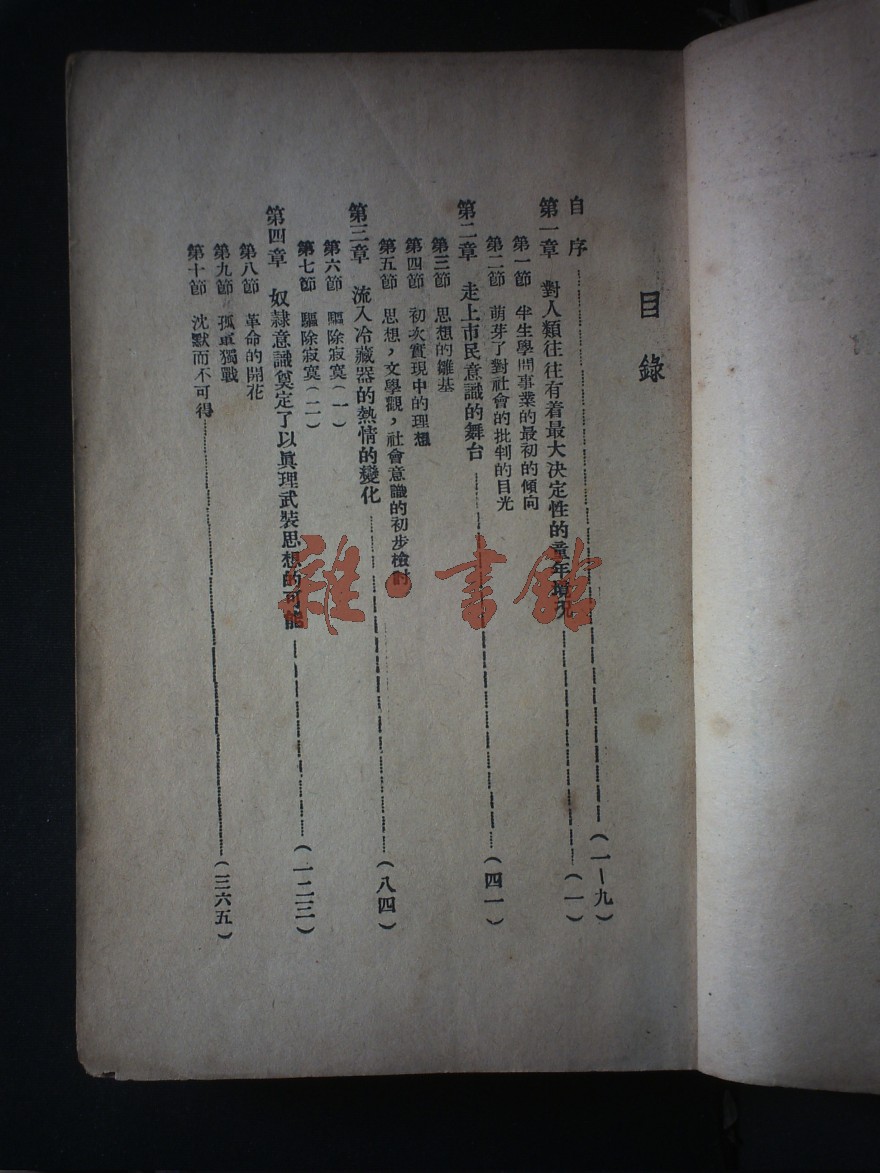 目錄
自序……(一—九)
第一章　對人類往往有着最大決定性的童年境況……(一)
第一節　半生學問事業的最初的傾向
第二節　萌芽了對社會的批判的目光
第二章　走上市民意識的舞台……(四一)
第三節　思想的雛基
第四節　初次實現中的理想
第五節　思想，文學觀，社會意識的初步檢討
第三章　流入冷藏器的熱情的變化……(八四)
第六節　驅除寂寞(一)
第七節　驅除寂寞(二)
第四章　奴隸意識奠定了以眞理武裝思想的可能……(一二三)
第八節　革命的開花
第九節　孤軍獨戰
第十節　沈默而不可得……(三六五)
雜·書館